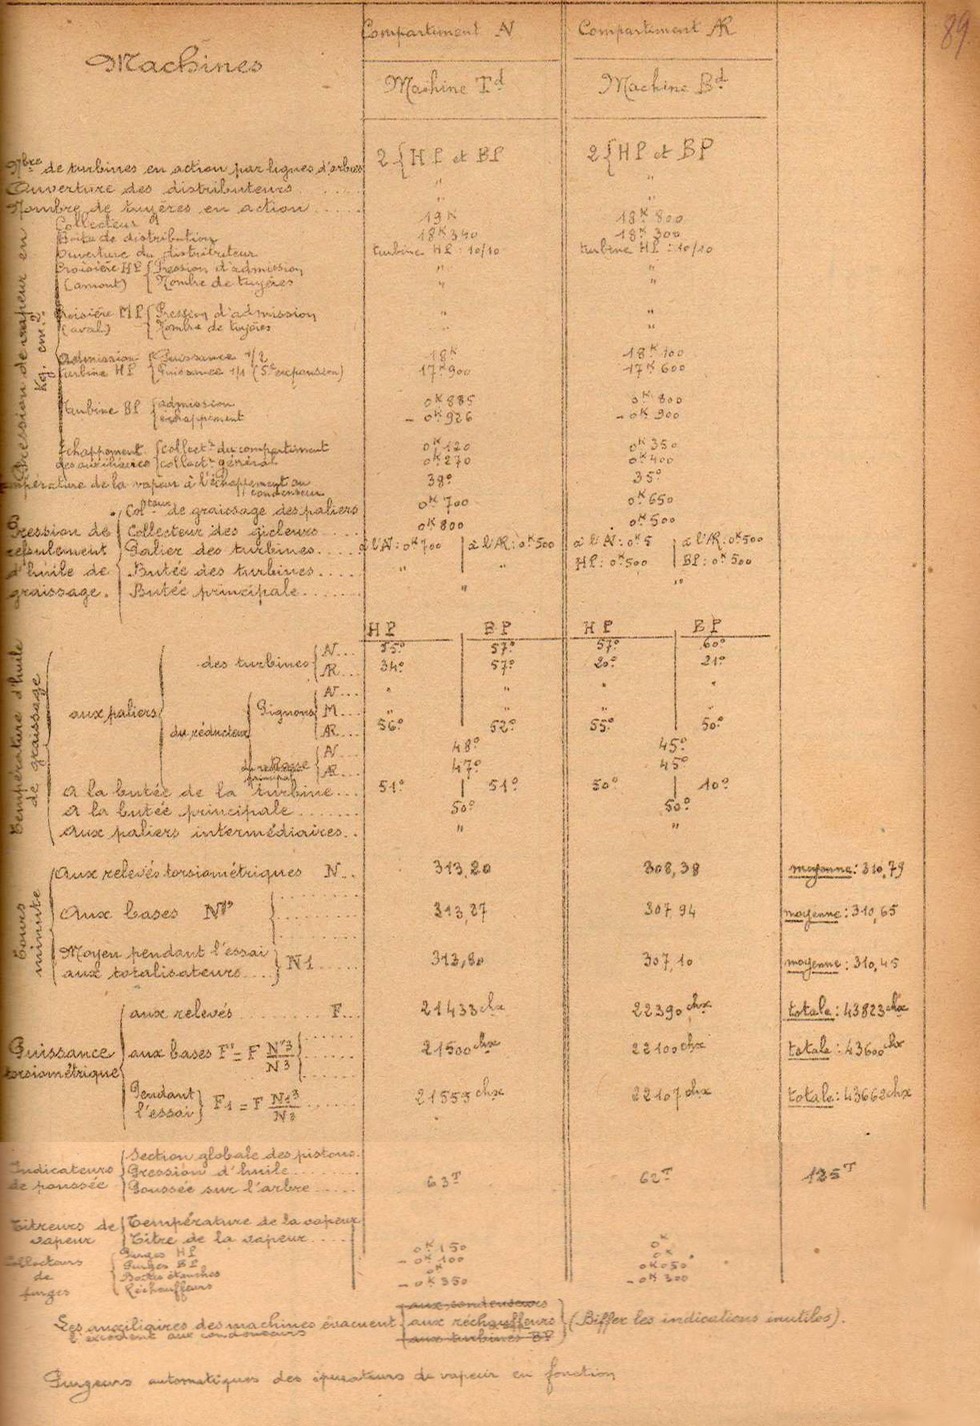 89
Compartiment AV
Compartiment AR
Machines
Machine Td
Machine Bd
Nbre de turbines en action par lignes d'arbres
2 { HP et BP
2 { HP et BP
Ouverture des distributeurs
"
"
Nombre de tuyères en action
"
"
Pression de vapeur en Kg. cm.2
Collecteur
19K
18K 800
Boîte de distribution
18K 340
18K 300
Ouverture du distributeur
turbine HP : 10/10
turbine HP : 10/10
Croisière HP (amont) { Pression d'admission
"
"
Nombre de tuyères
"
"
Croisière MP (aval) { Pression d'admission
"
"
Nombre de tuyères
"
"
Admission turbine HP { Puissance 1/2
18K
18K 100
Puissance 1/1 (5e expansion)
17K 900
17K 600
Turbine BP { admission
0K 885
0K 800
échappement
- 0K 926
- 0K 900
Échappement des auxiliaires { collectr du compartiment
0K 120
0K 350
collectr général
0K 270
0K 400
Température de la vapeur à l'échappement au condenseur
38°
35°
Pression de refoulement d'huile de graissage.
Colteur de graissage des paliers
0K 700
0K 650
Collecteur des gicleurs
0K 800
0K 500
Palier des turbines
à l'AV : 0K 700
à l'AR : 0K 500
à l'AV : 0K 5
à l'AR : 0K 500
Butée des turbines
"
"
HP : 0K 500
BP : 0K 500
Butée principale
"
"
HP
BP
HP
BP
Température d'huile de graissage
aux paliers
des turbines { AV
55°
57°
57°
60°
AR
34°
57°
20°
21°
du réducteur
Pignons { AV
"
"
"
"
M
"
"
"
AR
56°
52°
55°
50°
AV
48°
45°
AR
47°
45°
A la butée de la turbine
51°
51°
50°
10°
A la butée principale
50°
50°
Aux paliers intermédiaires
"
"
Tours minute
Aux relevés torsiométriques N
313,20
308,38
moyenne : 310,79
Aux bases N'
313,27
307,94
moyenne : 310,65
Moyen pendant l'essai aux totalisateurs } N1
313,80
307,10
moyenne : 310,45
Puissance torsiométrique
aux relevés F
21433 chx
22390 chx
totale : 43823 chx
aux bases F' = F N'3/N3
21500 chx
22100 chx
totale : 43600 chx
Pendant l'essai } F1 = F N13/N3
21555 chx
22107 chx
totale : 43662 chx
Indicateurs de poussée
Section globale des pistons
Pression d'huile
Poussée sur l'arbre
63T
62T
125T
Titreurs de vapeur
Température de la vapeur
Titre de la vapeur
Collecteurs de purges
Purges HP
0K 150
0K
Purges BP
- 0K 100
0K
Boîtes étanches
0K
0K 050
Réchauffeurs
- 0K 350
- 0K 300
Les auxiliaires des machines évacuent { aux condenseurs
aux réchauffeurs } (Biffer les indications inutiles).
l'excédent aux condenseurs
aux turbines BP
Purgeurs automatiques des épurateurs de vapeur en fonction